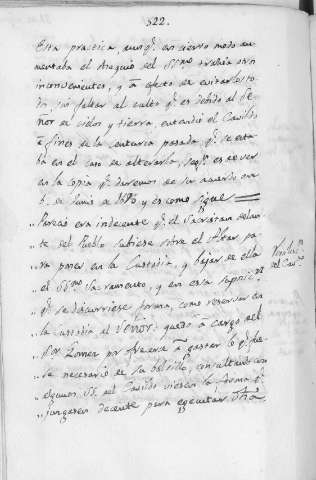 522.
Esta practica, aunq.e en cierto modo au
mentaba el obsequio del SS.mo trahia otros
inconvenientes, y à efecto de evitar esto
sin faltar al culto q.e es debido al Se
ñor de cielos y tierra, entendió el Cavildo
à fines de la centuria pasada q.e se esta
ba en el caso de alterarla, seg.n es de ver
en la copia q.e daremos de su acuerdo en
6. de Junio de 1690 y es como sigue
Pareció era indecente q.e el Sacristan delan
„ te del Pueblo subiese sobre el Altar pa
„ ra poner en la Custodia, y bajar de ella
„ el SS.mo Sacramento, y en esta
„ q.e se discurriese forma, como reservar en
„ la Custodia al Señor: quedó à cargo del
„ s.or gastar lo q.e fue
„ se necesario de su bolsillo, consultando con
„ algunos SS. del Cavildo viesen la forma q.e
„ juzgasen decente para egecutar
del Cav.do